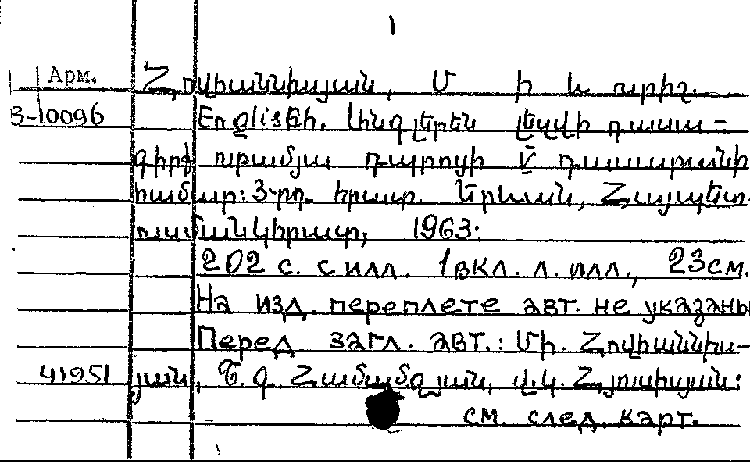 1
Арм. Հովհաննիսյան, Մ ի և ուրիշ.
3-10096 English. Անգլերեն լեզվի դասա-
գիրք ութամյա դպրոցի V դասարանի
համար: 3-րդ. հրատ. Երևան, Հայպետ-
ուսմանկհրատ, 1963:
202 с. с илл. 1 вкл. л. илл., 23 см.
На изд. переплете авт. не указаны
Перед загл. авт.: Մ.ի. Հովհաննիս-
41951 յան, Հ.
см. след. карт.